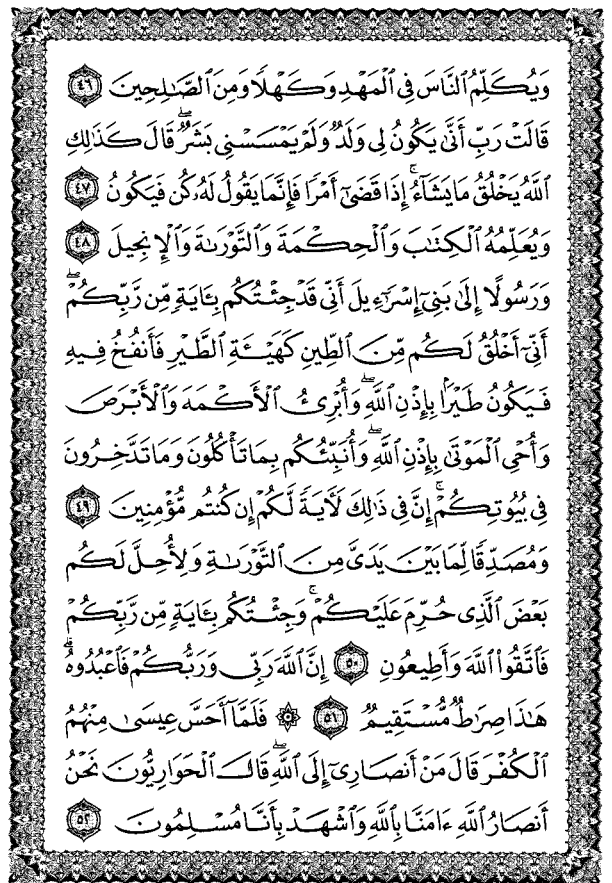 وَيُكَلِّمُ ٱلنَّاسَ فِي ٱلْمَهْدِ وَكَهْلًا وَمِنَ ٱلصَّـٰلِحِينَ ٤٦
قَالَتْ رَبِّ أَنَّىٰ يَكُونُ لِى وَلَدٌ وَلَمْ يَمْسَسْنِى بَشَرٌ ۖ قَالَ كَذَٰلِكِ
ٱللَّهُ يَخْلُقُ مَا يَشَآءُ ۚ إِذَا قَضَىٰٓ أَمْرًا فَإِنَّمَا يَقُولُ لَهُۥ كُن فَيَكُونُ ٤٧
وَيُعَلِّمُهُ ٱلْكِتَـٰبَ وَٱلْحِكْمَةَ وَٱلتَّوْرَىٰةَ وَٱلْإِنجِيلَ ٤٨
وَرَسُولًا إِلَىٰ بَنِىٓ إِسْرَٰٓءِيلَ أَنِّى قَدْ جِئْتُكُم بِـَٔايَةٍ مِّن رَّبِّكُمْ ۖ
أَنِّىٓ أَخْلُقُ لَكُم مِّنَ ٱلطِّينِ كَهَيْـَٔةِ ٱلطَّيْرِ فَأَنفُخُ فِيهِ
فَيَكُونُ طَيْرًۢا بِإِذْنِ ٱللَّهِ ۖ وَأُبْرِئُ ٱلْأَكْمَهَ وَٱلْأَبْرَصَ
وَأُحْىِ ٱلْمَوْتَىٰ بِإِذْنِ ٱللَّهِ ۖ وَأُنَبِّئُكُم بِمَا تَأْكُلُونَ وَمَا تَدَّخِرُونَ
فِى بُيُوتِكُمْ ۚ إِنَّ فِى ذَٰلِكَ لَـَٔايَةً لَّكُمْ إِن كُنتُم مُّؤْمِنِينَ ٤٩
وَمُصَدِّقًا لِّمَا بَيْنَ يَدَىَّ مِنَ ٱلتَّوْرَىٰةِ وَلِأُحِلَّ لَكُم
بَعْضَ ٱلَّذِى حُرِّمَ عَلَيْكُمْ ۚ وَجِئْتُكُم بِـَٔايَةٍ مِّن رَّبِّكُمْ
فَٱتَّقُوا۟ ٱللَّهَ وَأَطِيعُونِ ٥٠ إِنَّ ٱللَّهَ رَبِّى وَرَبُّكُمْ فَٱعْبُدُوهُ ۗ
هَـٰذَا صِرَٰطٌ مُّسْتَقِيمٌ ٥١ ۞ فَلَمَّآ أَحَسَّ عِيسَىٰ مِنْهُمُ
ٱلْكُفْرَ قَالَ مَنْ أَنصَارِىٓ إِلَى ٱللَّهِ ۖ قَالَ ٱلْحَوَارِيُّونَ نَحْنُ
أَنصَارُ ٱللَّهِ ءَامَنَّا بِٱللَّهِ وَٱشْهَدْ بِأَنَّا مُسْلِمُونَ ٥٢